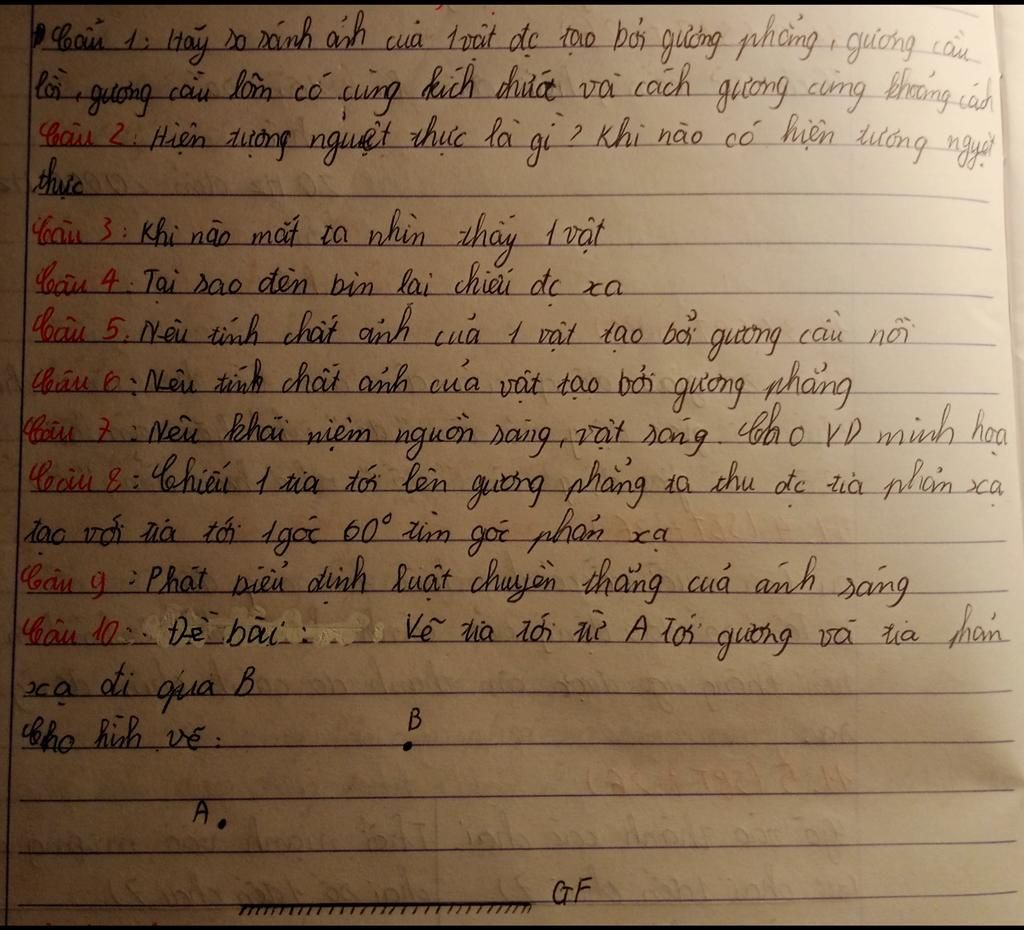 Câu 1: Hãy so sánh ảnh của 1 vật đc tạo bởi gương phẳng, gương cầu
lồi, gương cầu lõm có cùng kích thước và cách gương cùng khoảng cách
Câu 2: Hiện tượng nguyệt thực là gì? Khi nào có hiện tượng nguyệt
thực
Câu 3: Khi nào mắt ta nhìn thấy 1 vật
Câu 4: Tại sao đèn bin lại chiếu đc xa
Câu 5: Nêu tính chất ảnh của 1 vật tạo bởi gương cầu nồi
Câu 6: Nêu tính chất ảnh của vật tạo bởi gương phẳng
Câu 7: Nêu khái niệm nguồn sáng, vật sáng. Cho VD minh họa
Câu 8: Chiếu 1 tia tới lên gương phẳng ta thu đc tia phản xạ
tạo với tia tới 1 góc 60° tìm góc phản xạ
Câu 9: Phát biểu định luật chuyền thẳng của ánh sáng
Câu 10: Đề bài: Vẽ tia tới từ A tới gương và tia phản
xạ đi qua B
Cho hình vẽ:
B
A
GF